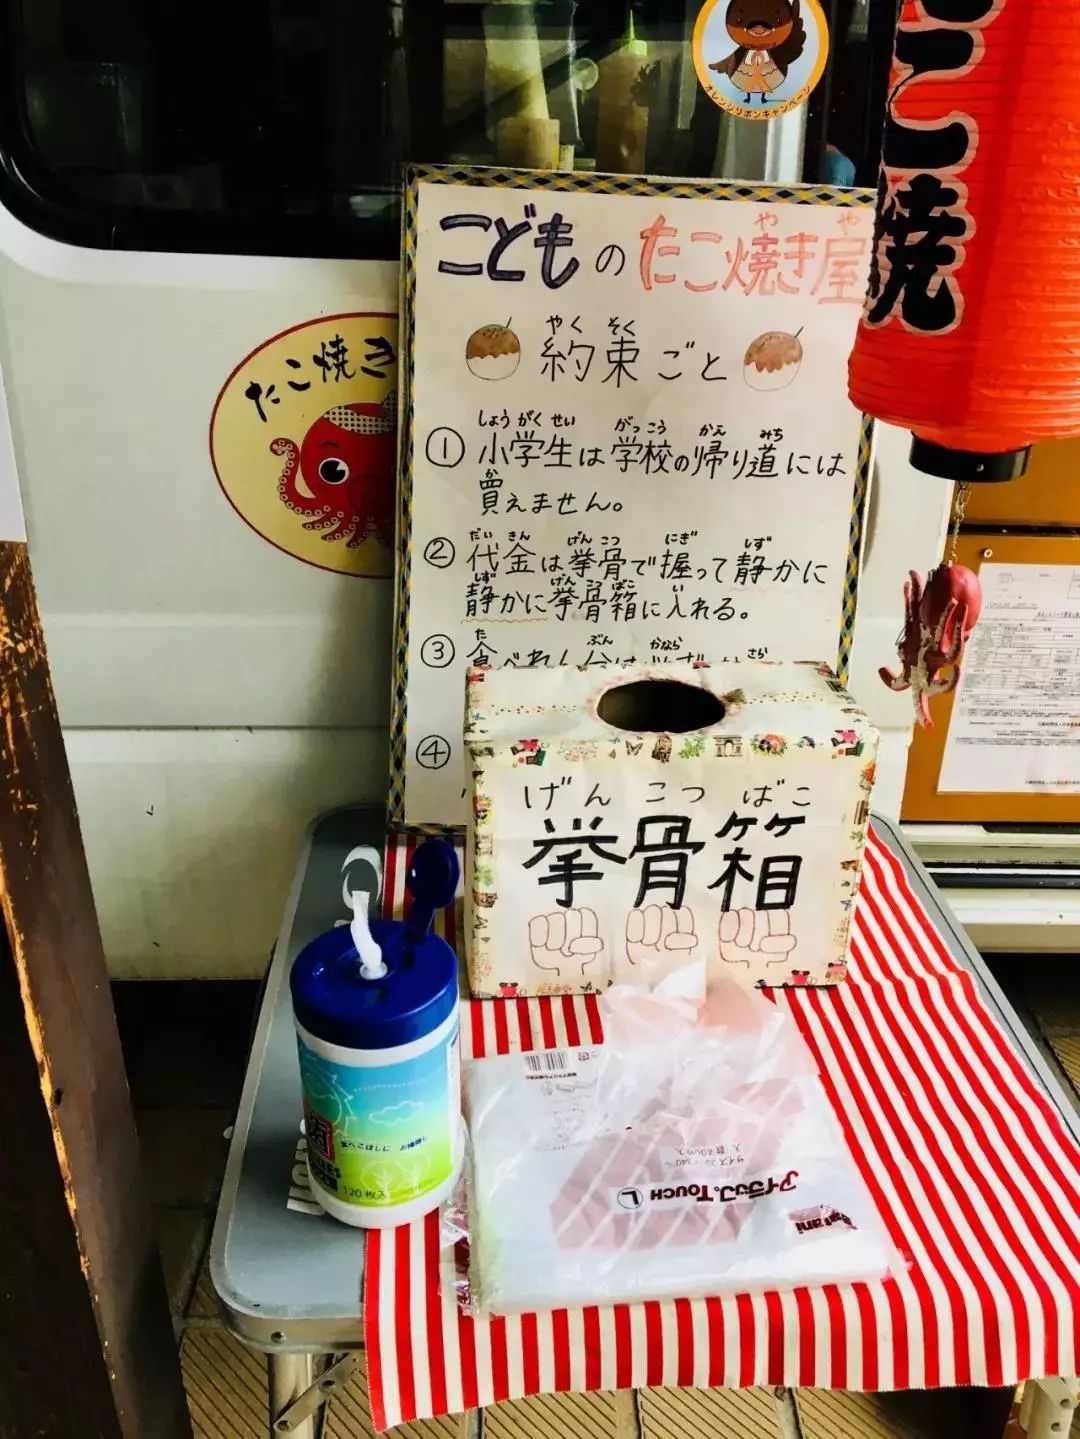 オレンジリボンキャンペーン
こ焼
たこ焼き
こどものたこ焼き屋
や や
やくそく
約束ごと
しょうがくせい がっこう かえ みち
①小学生は学校の帰り道には
か
買えません。
だいきん げんこつ にぎ しず
②代金は拳骨で握って静かに
しず げんこつばこ い
静かに拳骨箱に入れる。
た ぶん かなら さら
③食べれん分は必ず
④
げんこつばこ
拳骨箱
120枚入
アイラップ。TOUCH L